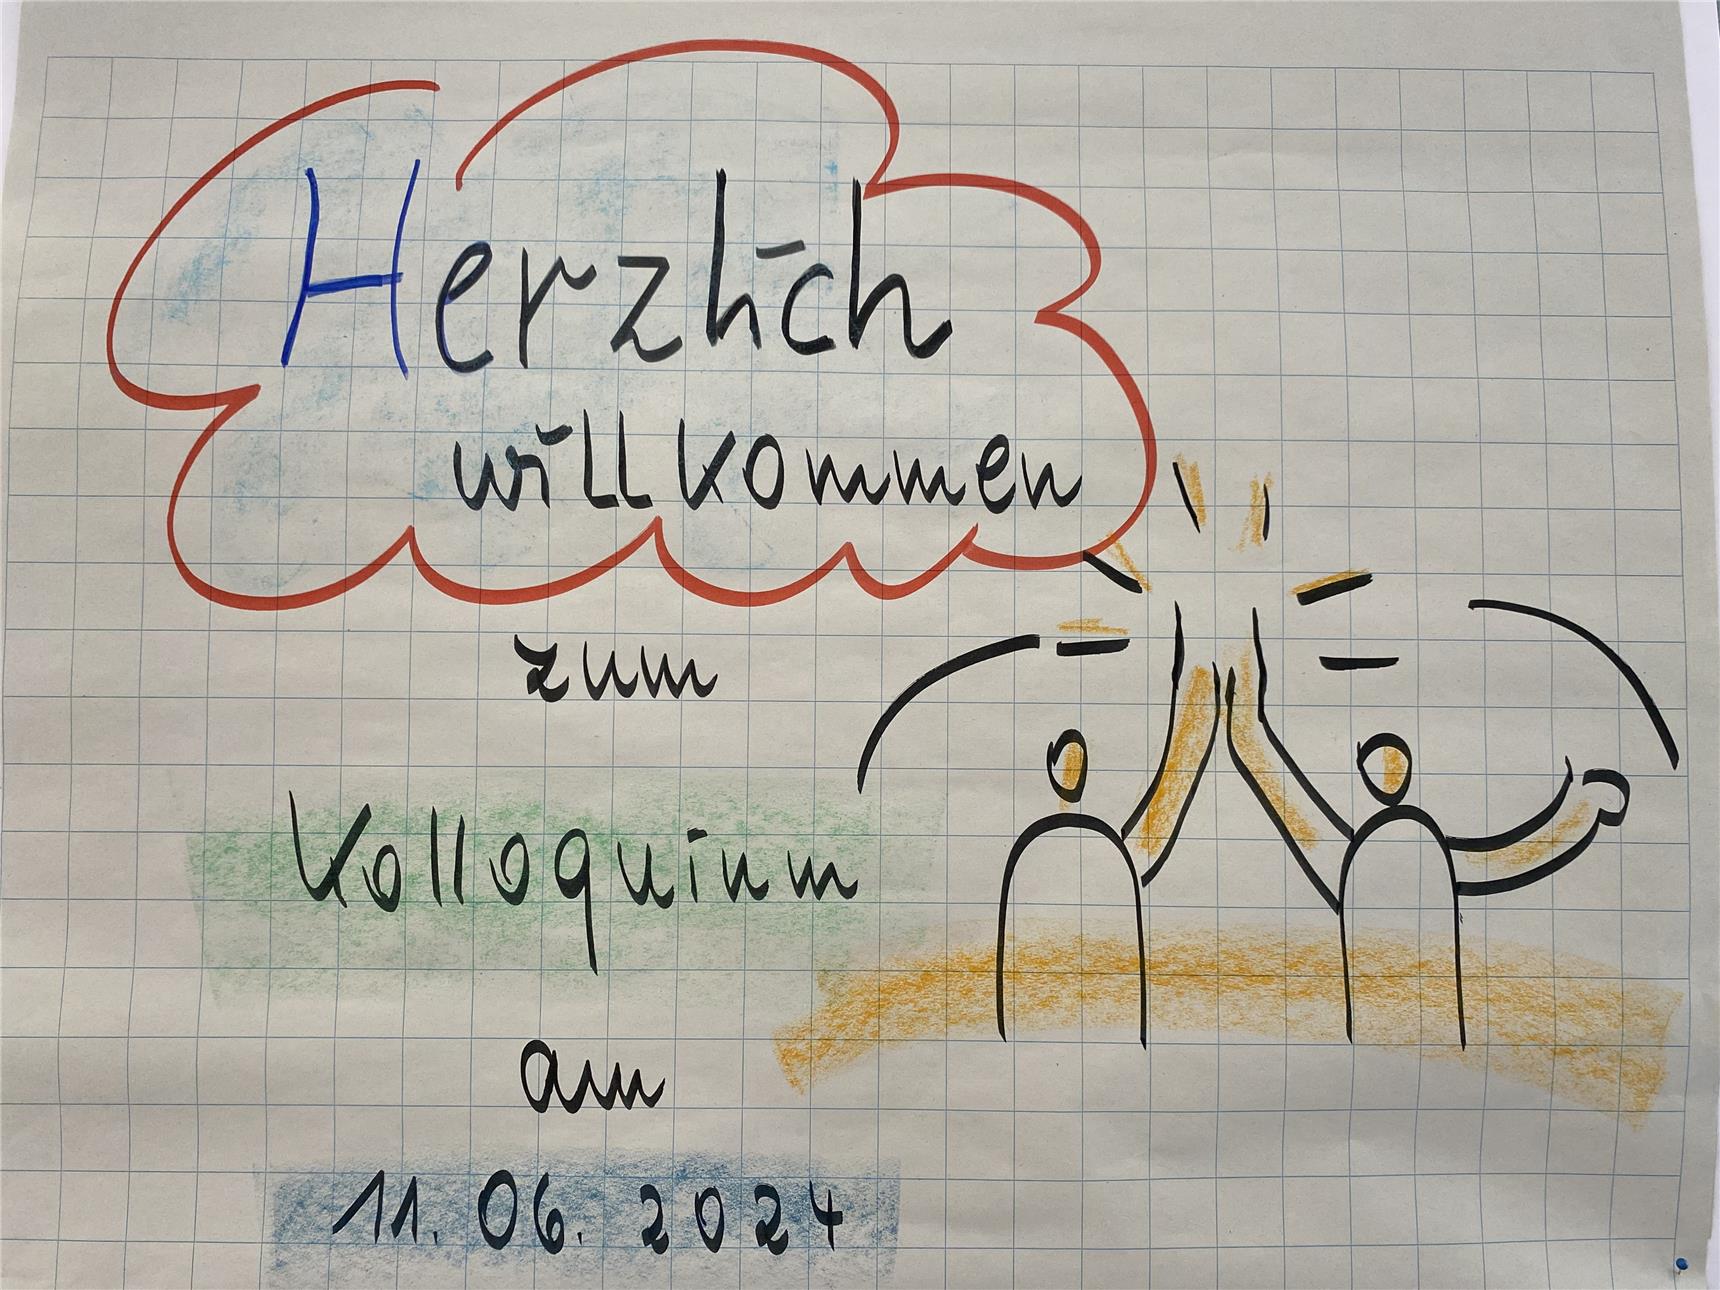 Herzlich
willkommen
zum
Kolloquium
am
11.06.2024